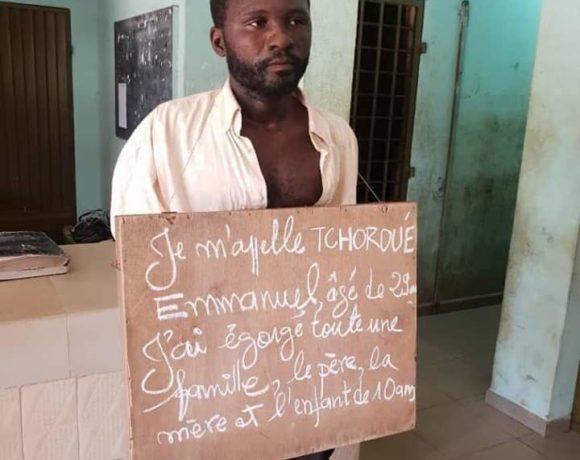 Je m'appelle TCHORDUÉ
Emmanuel, âgé de 29a
J'ai égorgé toute une
famille, le père, la
mère et l'enfant de 10am